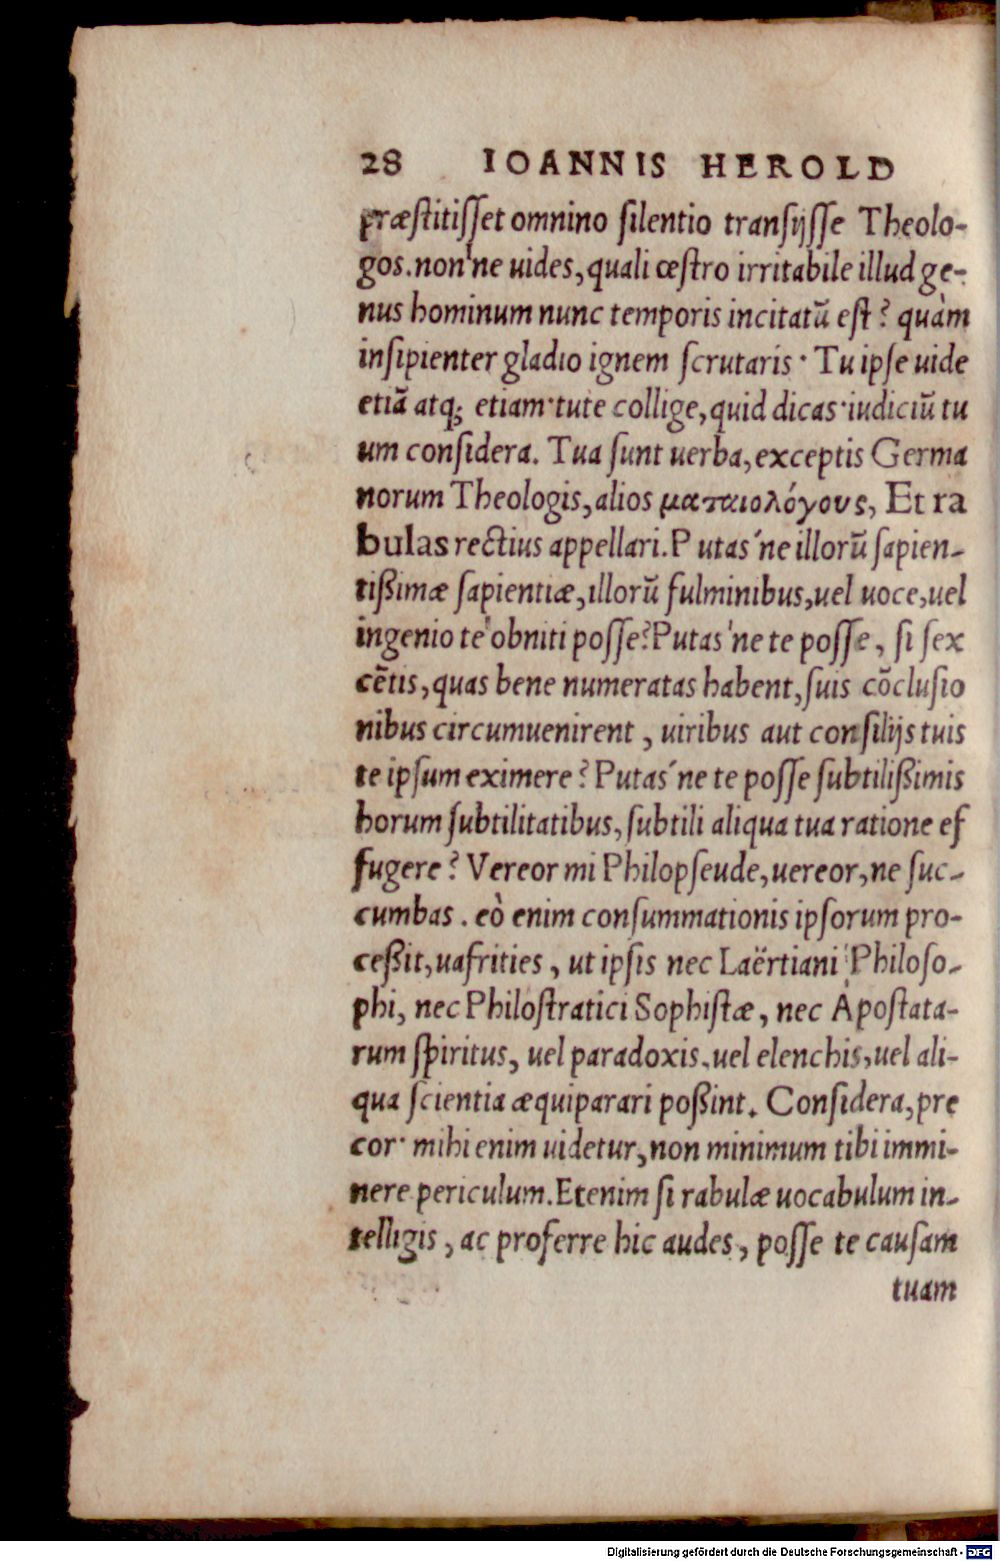 28 IOANNIS HEROLD
præſtitiſſet omnino ſilentio tranſijſſe Theolo-
gos. non'ne uides, quali œſtro irritabile illud ge-
nus hominum nunc temporis incitatũ eſt? quàm
inſipienter gladio ignem ſcrutaris· Tu ipſe uide
etiã atq; etiam·tute collige, quid dicas·iudiciũ tu
um conſidera. Tua ſunt uerba, exceptis Germa
norum Theologis, alios ματαιολόγους, Et ra
bulas rectius appellari. Putas'ne illorũ ſapien-
tißimæ ſapientiæ, illorũ fulminibus, uel uoce, uel
ingenio te obniti poſſe? Putas'ne te poſſe, ſi ſex
cẽtis, quas bene numeratas habent, ſuis cõcluſio
nibus circumuenirent, uiribus aut conſilijs tuis
te ipſum eximere? Putas'ne te poſſe ſubtilißimis
horum ſubtilitatibus, ſubtili aliqua tua ratione ef
fugere? Vereor mi Philopſeude, uereor, ne ſuc-
cumbas. eò enim conſummationis ipſorum pro-
ceßit, uafrities, ut ipſis nec Laërtiani Philoſo-
phi, nec Philoſtratici Sophiſtæ, nec Apoſtata-
rum ſpiritus, uel paradoxis, uel elenchis, uel ali-
qua ſcientia æquiparari poßint. Conſidera, pre
cor· mihi enim uidetur, non minimum tibi immi-
nere periculum. Etenim ſi rabulæ uocabulum in-
telligis, ac proferre hic audes, poſſe te cauſam
tuam
Digitalisierung gefördert durch die Deutsche Forschungsgemeinschaft - DFG